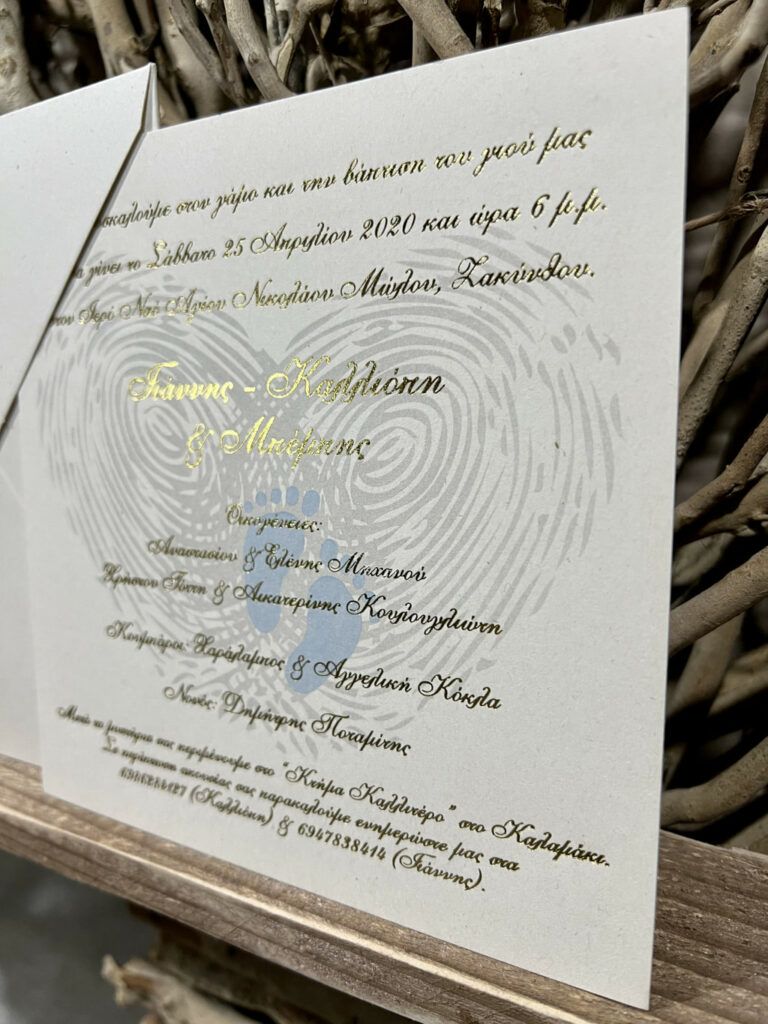 σκαλούμε στον γάμο και την βάπτιση του γιού μας
α γίνει το Σάββατο 25 Απριλίου 2020 και ώρα 6 μ.μ.
τον Ιερό Ναό Αγίου Νικολάου Μώλου, Ζακύνθου.
Γιάννης - Καλλιόπη
& Μπέμπης
Οικογένειες:
Αναστασίου & Ελένης Μηχανού
Χρήστου Γόττη & Αικατερίνης Κουλουγλιώτη
Κουμπάροι: Χαράλαμπος & Αγγελική Κόκλα
Νονός: Δημήτρης Ποταμίτης
Μετά το μυστήριο σας περιμένουμε στο "Κτήμα Καλλιτέρο" στο Καλαμάκι.
Σε περίπτωση απουσίας σας παρακαλούμε ενημερώστε μας στα
(Καλλιόπη) & 6947838414 (Γιάννης).